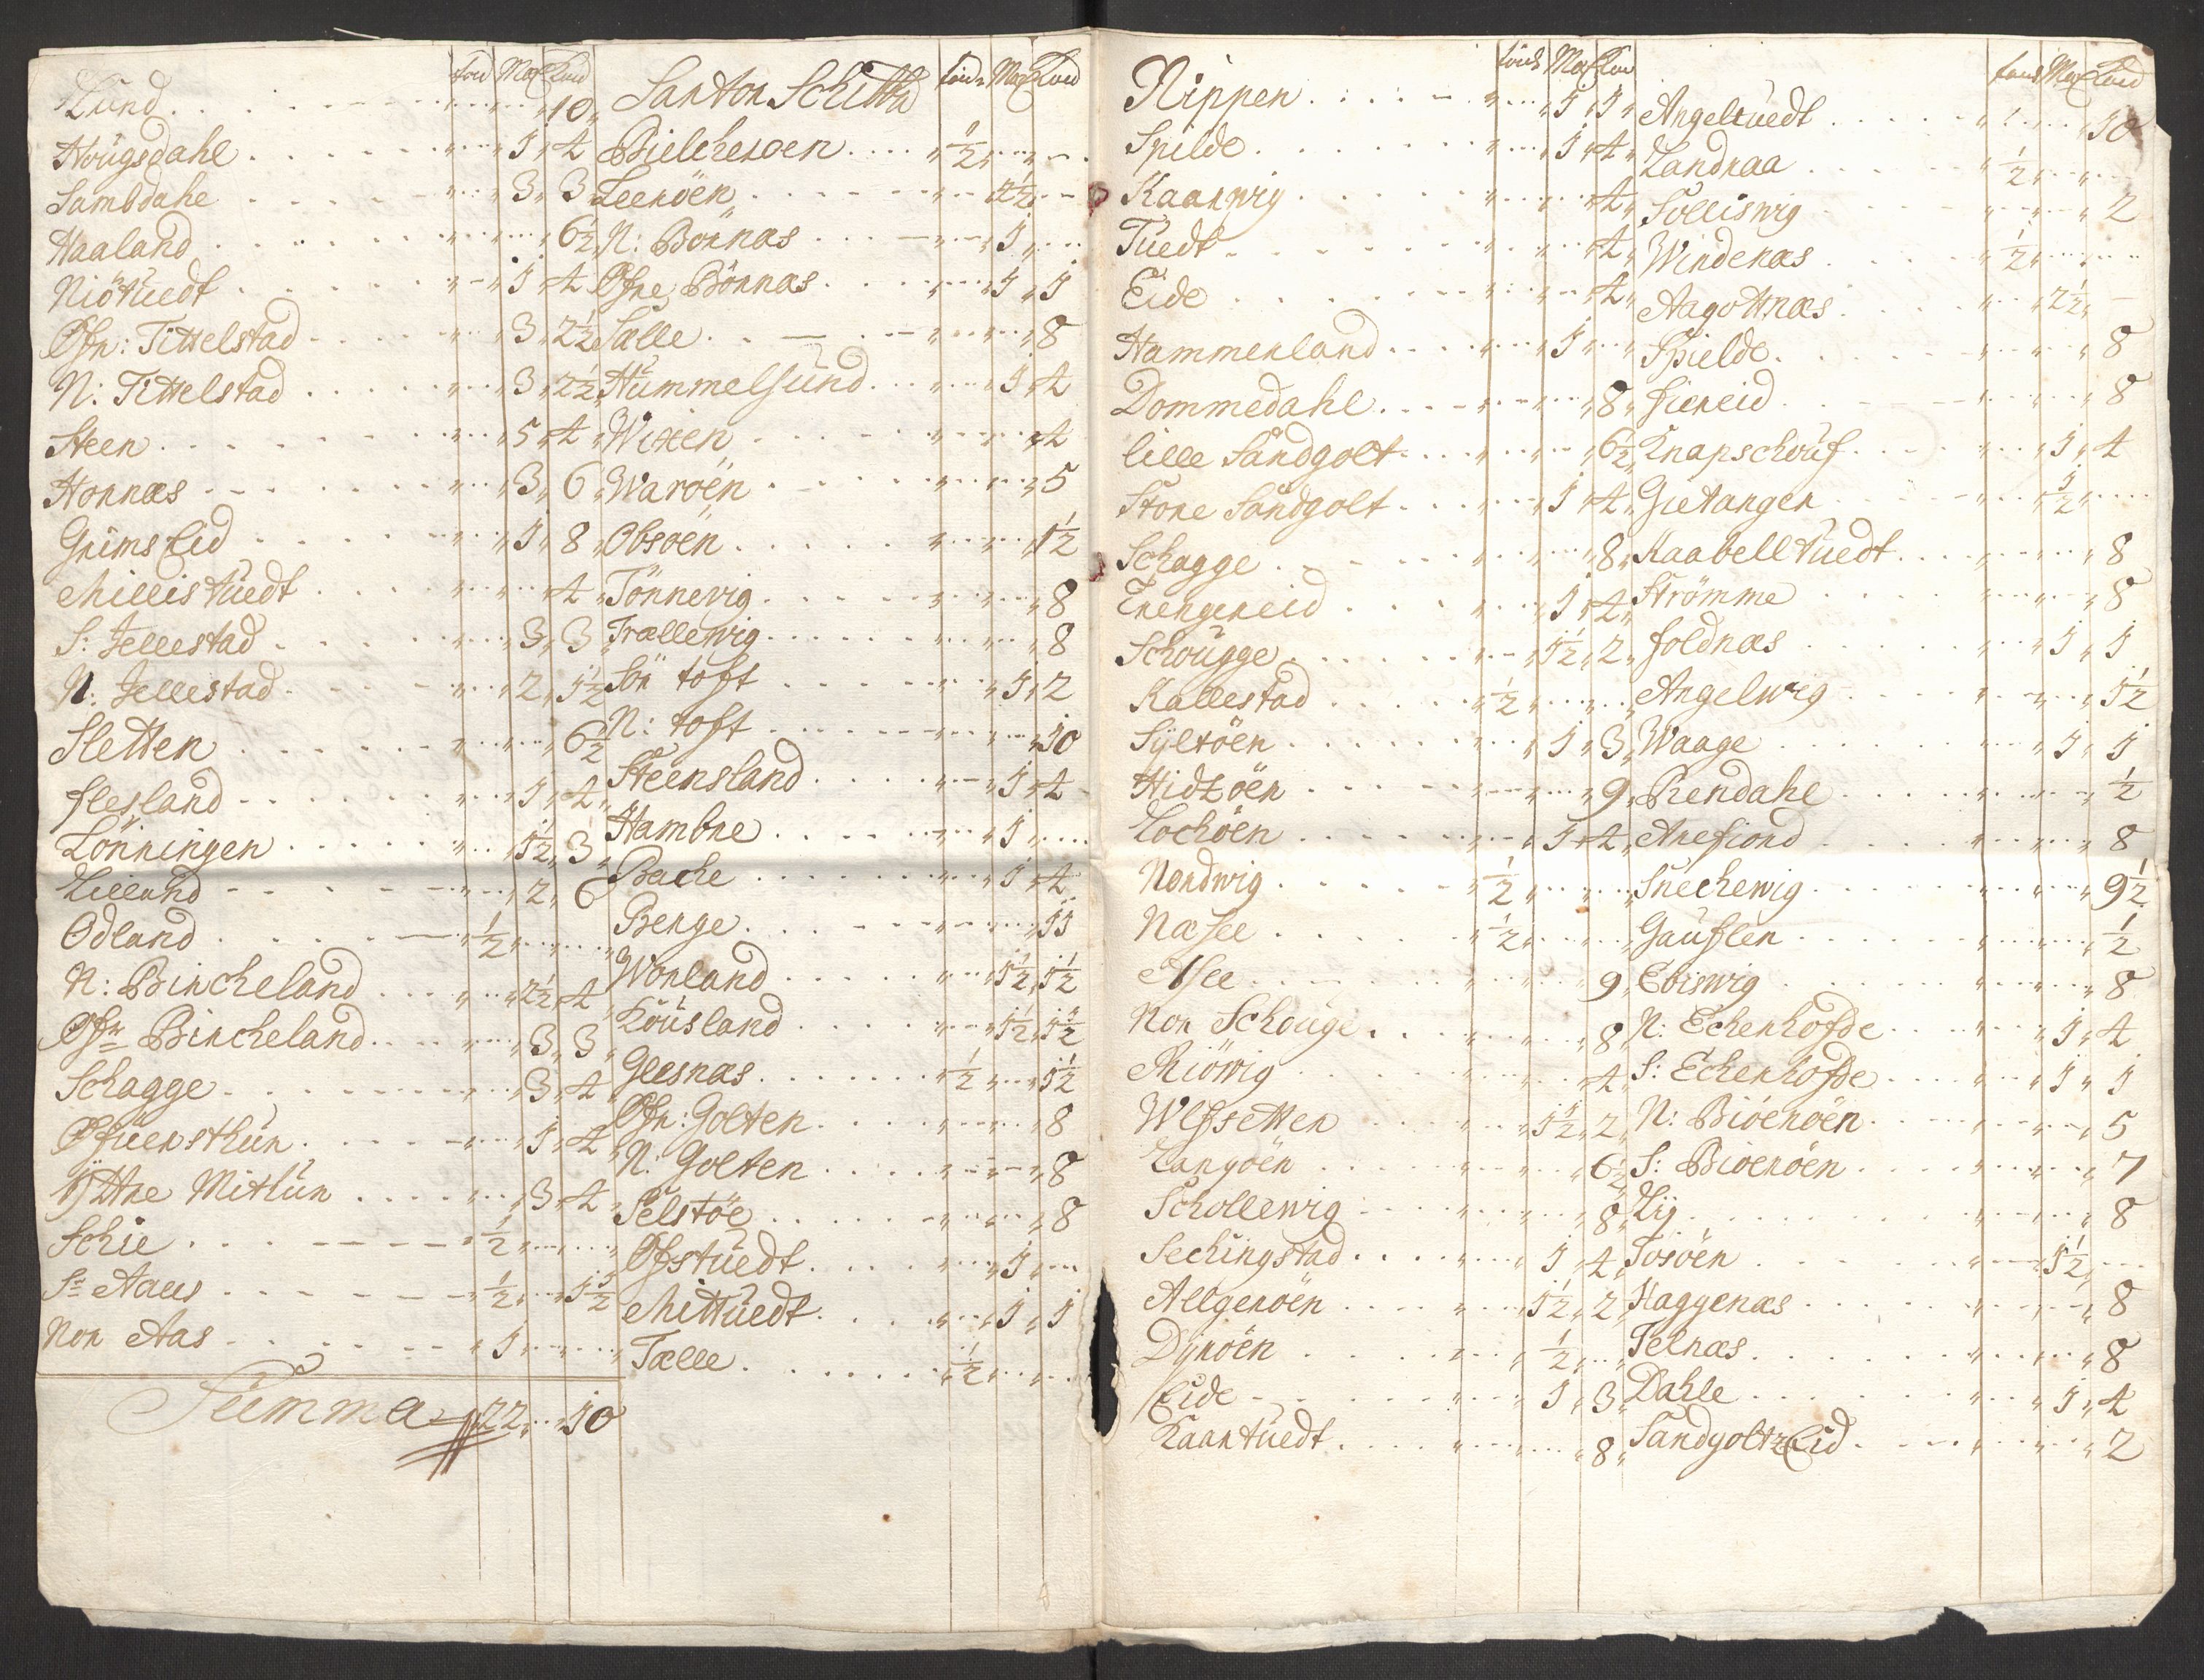 Lund 10
Hougsdahl 1 4
Sambdahe 3 3
Haaland 6½
Niötuedt 1 4
Øfr: Tittelstad 3 2½
N: Tittelstad 3 2½
Steen 5 4
Hornæs 3 6
Grims Eid 1 8
Millistuedt 4
S: Jellestad 3 3
N: Jellestad 2 1½
Sletten 6½
flesland 1 4
Lönningen 1½ 3
Lilland 2 6
Odland ½
N: Bircheland 2½ 4
Øfr Bircheland 3 3
Schagge 3 4
Øfuersthun 1 4
Yttre Mithun 3 4
Schie ½
Sr Aaes ½ 1½
Nor Aas 1
Summa 22 10
Sartor Schibbr
Bielcheroen ½
Leeröen 2½
N: Börnæs 1
Øfre Börnæs 1 1
Sælle 8
Hummelsund 1 4
Wixen 4
Waroen 5
Obsoen 1½
Tönnevig 8
Trællewig 8
Sör toft 1 2
N: toft 10
Steensland 1 4
Hambre 1
Bache 1 4
Berge 11
Worland 1½ 1½
Kousland 1½ 1½
Glesnæs ½ 1½
Øfr: Golten 8
N: Golten 8
Selstöe 8
Ofstuedt 1
Mittuedt 1 1
Tælle ½
Rippen 1 1
Spilde 1 4
Kaarwig 4
Tuedt 4
Eide 4
Hammerland 1
Dommedahl 8
lille Sandgolt 6½
Store Sandgolt 1 4
Schagge 8
Trengereid 1 4
Schougge 1½ 2
Kallestad ½
Syltöen 1 3
Hidtöen 9
Lochöen 1 4
Nordwig ½
Næsee ½
Algee 9
Nor Schouge 8
Miöwig 4
Wlfsetten 1½ 2
Langöen 6½
Schollewig 8
Sechingstad 1 4
Allgeröen 1½ 2
Dyröen ½
Eide 1 3
Kaartuedt 8
Angeltuedt 10
Landraa ½
Solliswig 2
Windenæs ½
Aagottnæs 2½
Spielde 8
fiereid 8
Knapschouf 1 4
Gietanger ½
Kaabelltuedt 8
Strömme 8
foldnæs 1 1
Angelwig 1½
Waage 1 1
Rendahl ½
Arefiord 8
Snechewig 9½
Gauflen ½
Ebiswig 8
N: Echerhofde 1 4
S: Echerhofde 1 1
N: Bioeröen 5
S: Bioeröen 7
Lij 8
Tosöen 1½
Haggenæs 8
Telnæs 8
Dahle 1 4
Sandgoltz Eid 2